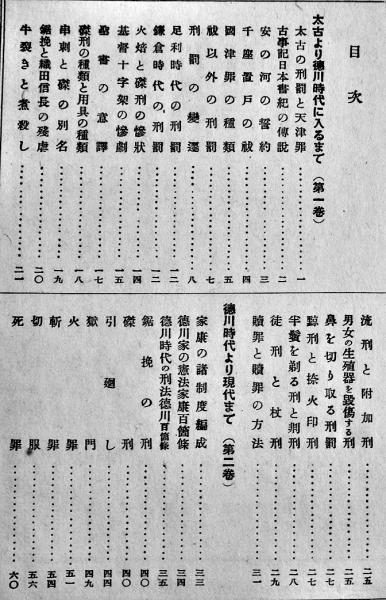 目次
太古より德川時代に入るまで（第一卷）
太古の刑罰と天津罪……一
古事記日本書紀の傳說……二
安の河の誓約……三
千座置戶の祓……四
國津罪の種類……五
祓以外の刑罰……七
刑罰の變遷……八
足利時代の刑罰……一二
鎌倉時代の刑罰……一二
火焙と磔刑の慘狀……一四
基督十字架の慘劇……一五
聖書の意譯……一七
磔刑の種類と用具の種類……一八
串刺と磔の別名……一九
鋸挽と織田信長の殘虐……二〇
牛裂きと煮殺し……二一
流刑と附加刑……二五
男女の生殖器を毀傷する刑……二五
鼻を切り取る刑罰……二七
黥刑と捺火印刑……二七
半鬢を剃る刑と刖刑……二八
徒刑と杖刑……二九
贖罪と贖罪の方法……三一
德川時代より現代まで（第二卷）
家康の諸制度編成……三三
德川家の憲法家康百箇條……三四
德川時代の刑法德川百箇條……三五
鋸挽の刑……四〇
磔刑……四〇
引廻し……四四
獄門……四九
火罪……五一
斬罪……五四
切服……五六
死罪……六〇